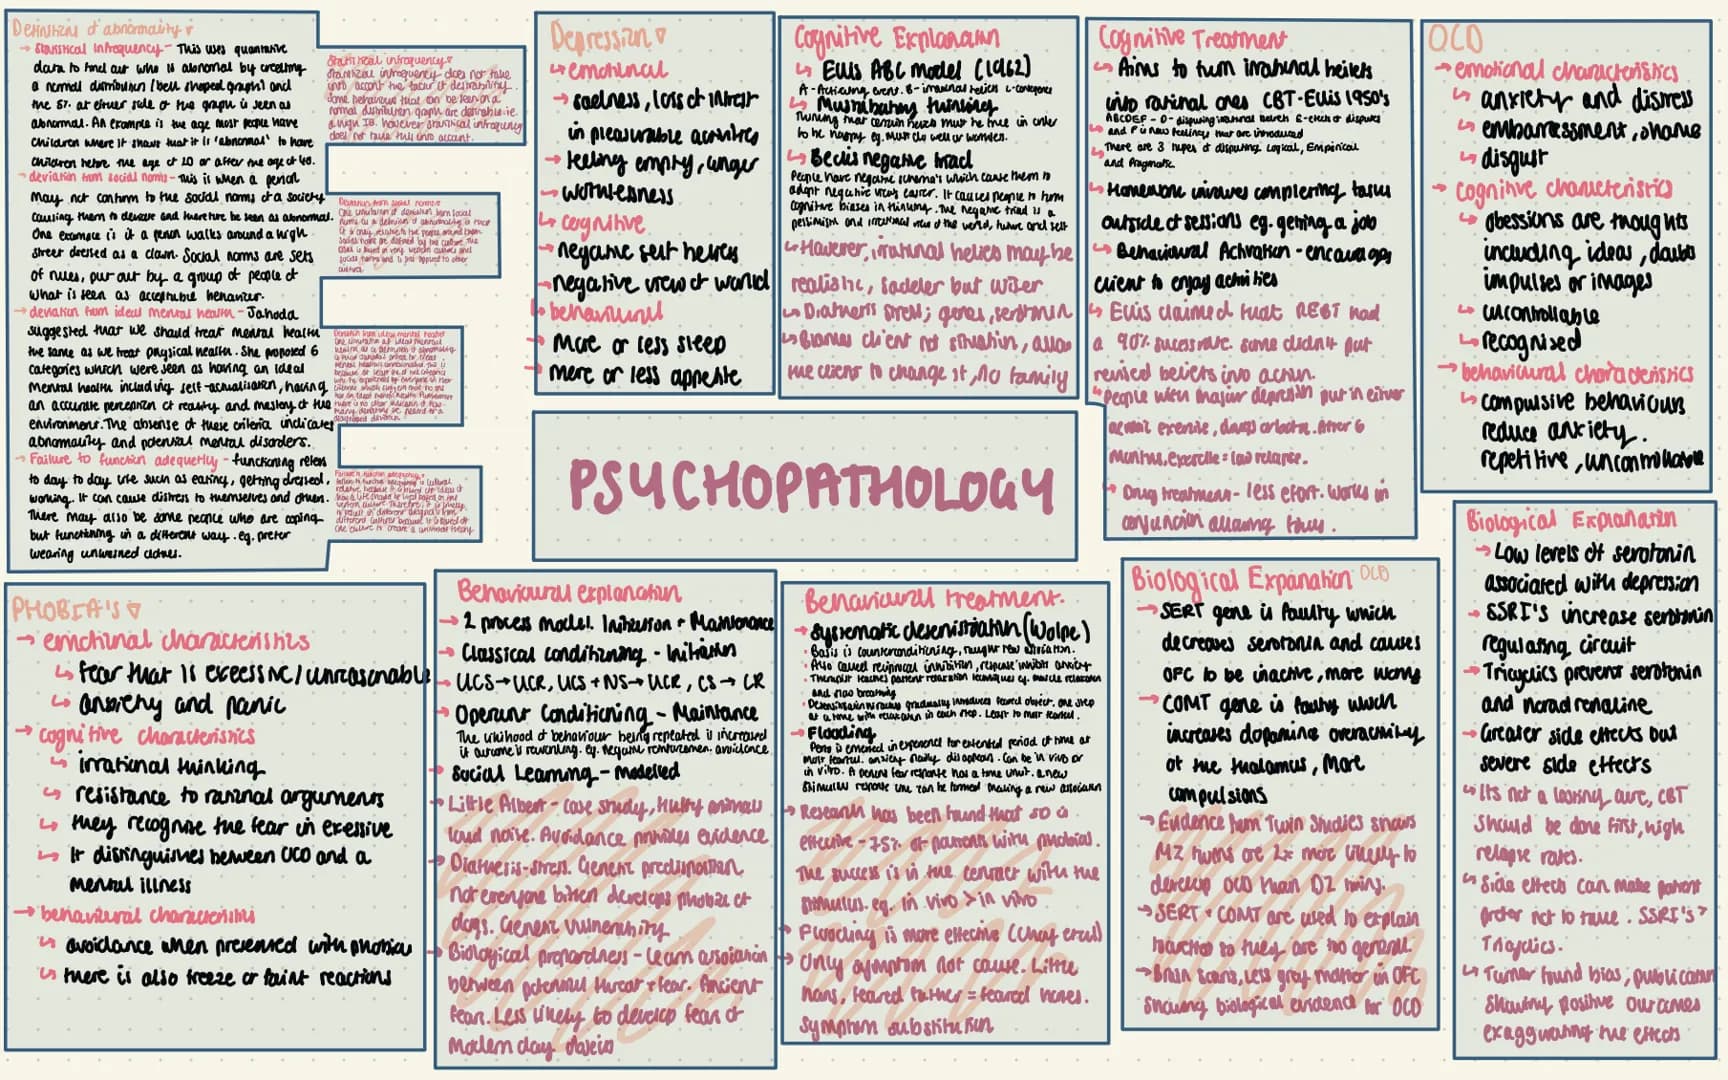 Definitions of abnormality
→ Statistical Infrequency - This uses quantative
data to find out who is abnormal by creating
a normal distribution (bell shaped graph) and
the 5%. at either side of the graph is seen as
abnormal. An example is the age most people have
children where it shows that it is 'abnormal' to have
children before the age of 20 or after the age of 40.
→ deviation from social norms - This is when a person
may not conform to the social norms of a society
causing them to deviate and therefore be seen as abnormal.
One example is if a person walks around a high
street dressed as a clown. Social norms are sets
of rules, put out by a group of people of
what is seen as acceptable behaviour.
→ deviation from ideal mental health - Jahoda
suggested that we should treat mental health
the same as we treat physical health. She proposed 6
categories which were seen as having an ideal
mental health including self-actualisation, having
an accurate perception of reality and mastery of the
environment. The absense of these criteria indicates
abnormality and potential mental disorders.
→ Failure to function adequetly - functioning refers
to day to day life such as eating, getting dressed,
working. It can cause distress to themselves and others.
There may also be some people who are coping
but functioning in a different way. eg. prefer
wearing unwashed clothes.
Statistical infrequency
Statistical infrequency does not take
into account the factor of desirability.
Some behaviours that can be seen on a
normal distribution graph are desirable i.e.
a high IQ. however statistical infrequency
does not take this into account.
Deviation from social norms
One limitation of deviation from social
norms as a definition of abnormality is
social norms are defined by the culture. The
Deviation from ideal mental health
Failure to function adequetly
PHOBIA'S
→ emotional characteristics
↳ fear that is excessive/unreasonable
↳ anxiety and panic
→ cognitive characteristics
↳ irrational thinking
↳ resistance to rational arguments
↳ they recognise the fear in exessive
↳ It distinguishes between OCD and a
mental illness
→ behavioural characteristics
↳ avoidance when presented with phobias
↳ there is also freeze or faint reactions
Depression
↳ emotional
→ sadness, loss of intrest
in pleasurable activities
→ feeling empty, anger
→ worthlessness
↳ cognitive
→ negative self beliefs
→ negative view of world
↳ behavioural
→ more or less sleep
→ more or less appetite
Cognitive Explanation
↳ Ellis ABC model (1962)
A - Activating event. B - irrational beliefs
↳ Musturbatory thinking
Thinking that certain ideas must be true in order
to be happy eg. Must do well or worthless.
↳ Becks negative triad
People have negative schema's which cause them to
adopt negative views easier. It causes people to form
cognitive biases in thinking. The negative triad is a
pessimism and irrational view of the world, future and self
↳ However, irrational beliefs may be
realistic, sadder but wiser
↳ Diathesis stress; genes, serotonin
↳ Blames client not situation, allow
the client to change it, no family
Cognitive Treatment
↳ Aims to turn irrational beliefs
into rational ones CBT - Ellis 1950's
ABCDEF - D - disputing irrational beliefs E - effect of disputes
and F is new feelings that are introduced
↳ There are 3 types of disputing Logical, Empirical
and Pragmatic.
↳ Homework involves completing tasks
outside of sessions eg. getting a job
↳ Behavioural Activation - encourages
client to enjoy activities
↳ Ellis claimed that REBT had
a 90% sucess rate. some didn't put
revised beliefs into action.
↳ People with major depression put in either
aerobic exercise, drugs or both. After 6
months, exercise = low relapse.
↳ Drug treatment - less effort. works in
conjuncion allowing focus.
OCD
→ emotional characteristics
↳ anxiety and distress
↳ embarrassment, shame
↳ disgust
→ cognitive characteristics
↳ obessions are thoughts
including ideas, doubts
impulses or images
↳ uncontrollable
↳ recognised
→ behavioural characteristics
↳ compulsive behaviours
reduce anxiety.
repetitive, uncontrollable
PSYCHOPATHOLOGY
Behavioural explanation
→ 2 process model. Initiation + Maintenance
→ Classical conditioning - Initiation
→ UCS → UCR, UCS + NS → UCR, CS → CR
→ Operant Conditioning - Maintance
The likihood of behaviour being repeated is increased
if outcome is rewarding. eg. Negative reinforcement. avoidence
→ Social Learning - modelled
→ Little Albert - case study, fluffy animals
loud noise. Avoidance provides evidence
→ Diathesis-stress. Genetic predisposition
not everyone bitten develops phobia of
dogs. Genetic vulnerability
→ Biological preparedness - Learn assosiation
between potential threat + fear. Ancient
fear. Less likely to develop fear of
modern day
Behavioural treatment.
→ Systematic desensitisation (Wolpe)
Basis is counterconditioning, taught new assosiation.
Also called reciprocal inhibition, response inhibits anxiety
Therapist teaches patient relaxation techniques eg. muscle relaxation
and slow breathing
Desensitisation hierarchy gradually introduces feared object. one step
at a time with relaxation in each step. Least to most fearful.
→ Flooding
most fearful. anxiety finally disappears. Can be in vivo or
in vitro. A persons fear response has a time limit. a new
stimulus response link can be formed making a new association
→ Research has been found that SD is
effective - 75% of patients with phobias.
The success is in the contact with the
stimulus. eg. in vivo > in vitro
→ Flooding is more effective (Choy et al)
→ Only symptom not cause. Little
Hans, feared father = feared horses.
symptom substitution
Biological Expanation OCD
→ SERT gene is faulty which
decreases serotonin and causes
OFC to be inactive, more worry
→ COMT gene is faulty which
increases dopamine overactivity
of the thalamus, more
compulsions
→ Evidence from Twin studies shows
MZ twins are 2x more likely to
develop OCD than DZ twins.
→ SERT + COMT are used to explain
to they are too general.
→ Brain scans, less gray matter in OFC
showing biological evidence for OCD
Biological Explanation
→ Low levels of serotonin
associated with depression
→ SSRI'S increase serotonin
regulating circuit
→ Tricyclics prevent serotonin
and noradrenaline
→ Greater side effects but
severe side effects
↳ Its not a lasting cure, CBT
should be done first, high
relapse rates.
↳ Side effects can make patient
prefer not to take. SSRI's >
Tricyclics.
↳ Turner found bias, publication
showing positive outcomes
exaggurating the effects